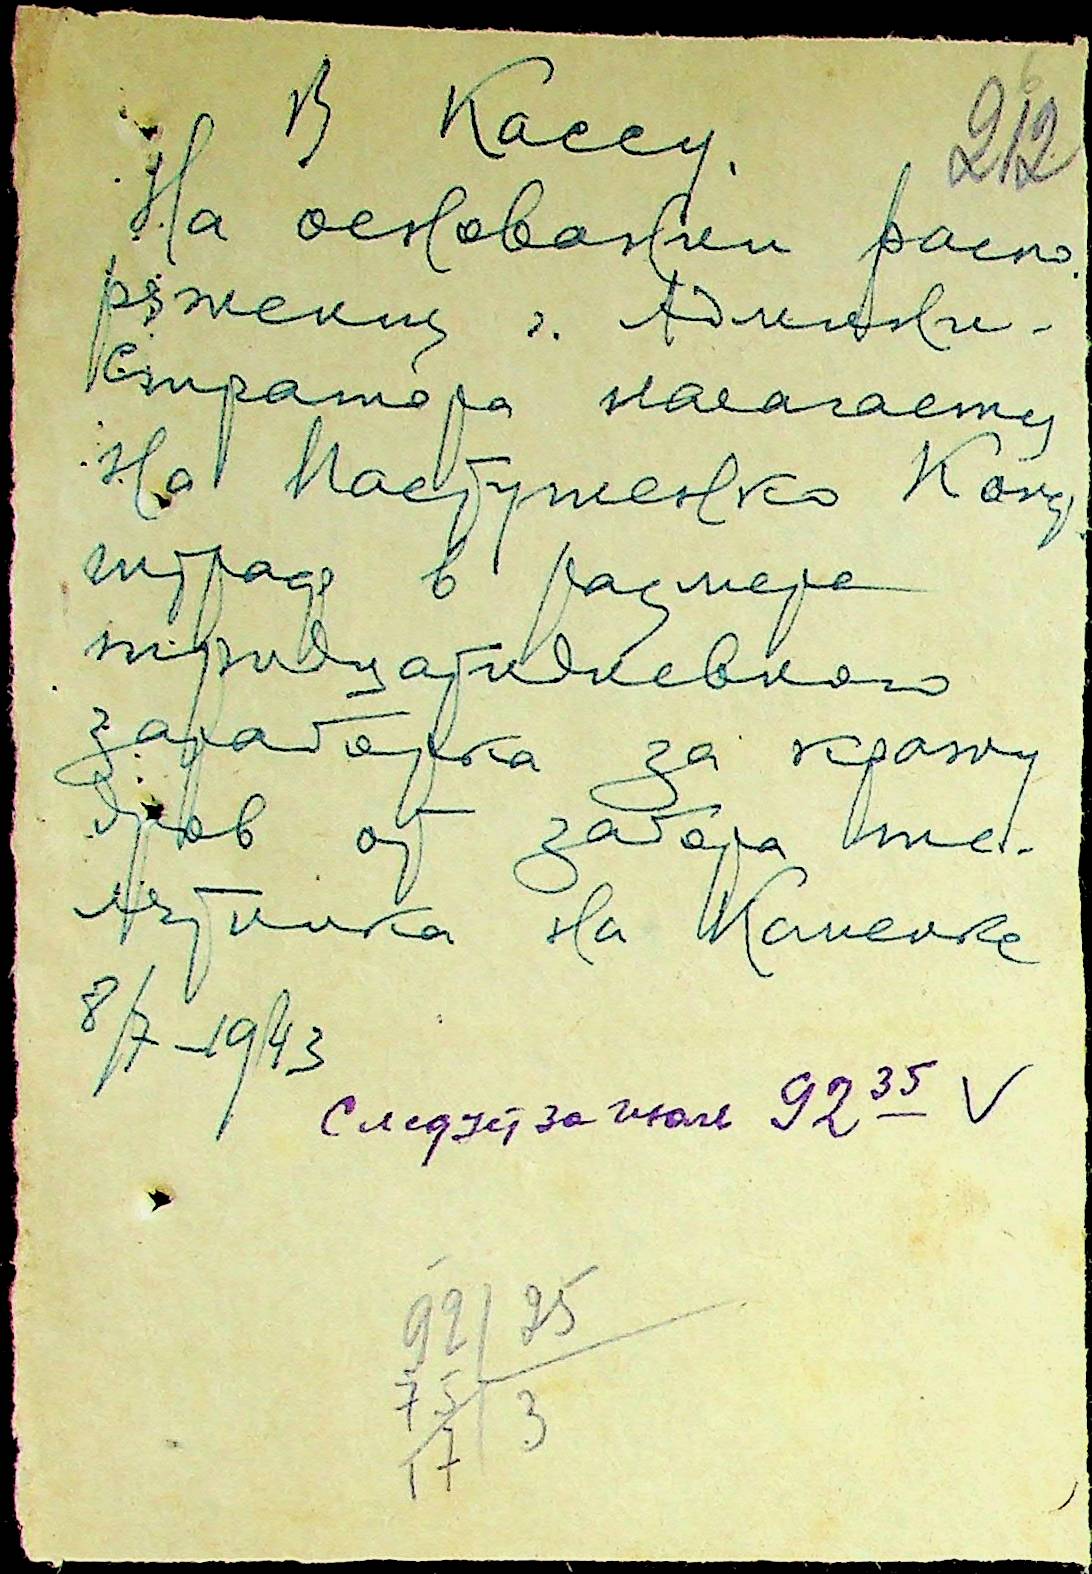 212
В Кассу.
На основании распо-
ряжения г. Админи-
стратора налагаету
На Пастушенко Конд.
штраф в размере
тридцатидневного
заработка за кражу
дров от забора те-
лятника на Каменке
8/7 –1943
Следует за июль 92 35 V
92 | 25
75 | 3
17